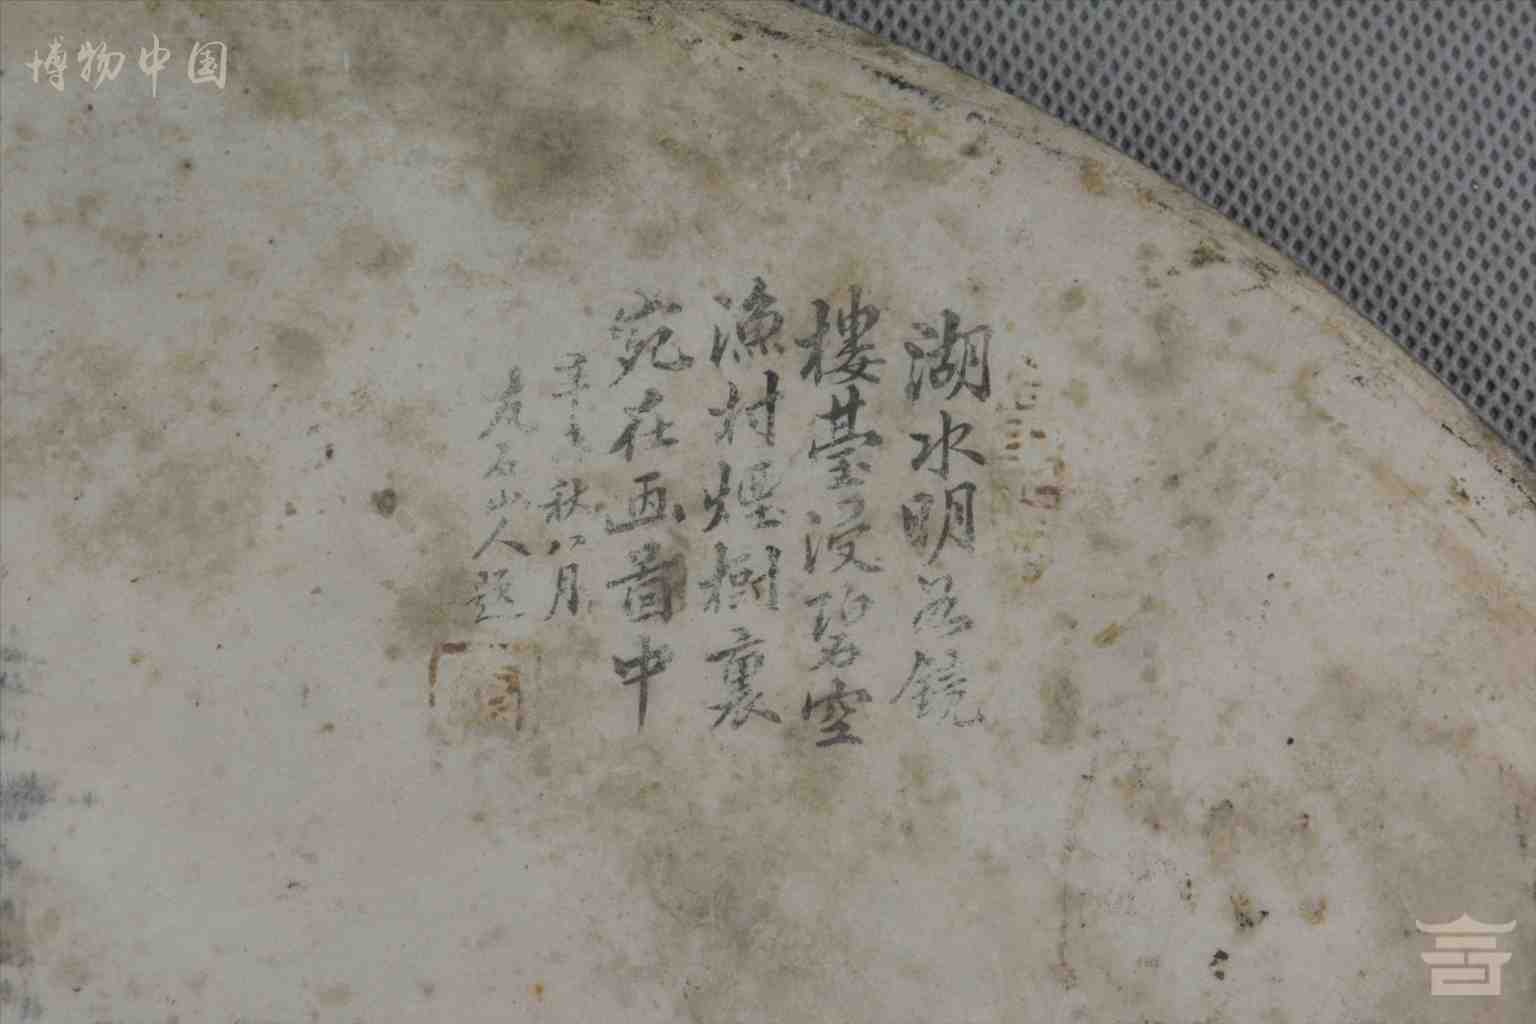 博物中国
湖水明如鏡
樓臺浸碧空
漁村煙樹裏
宛在画啚中
辛 秋八月
友石山人題